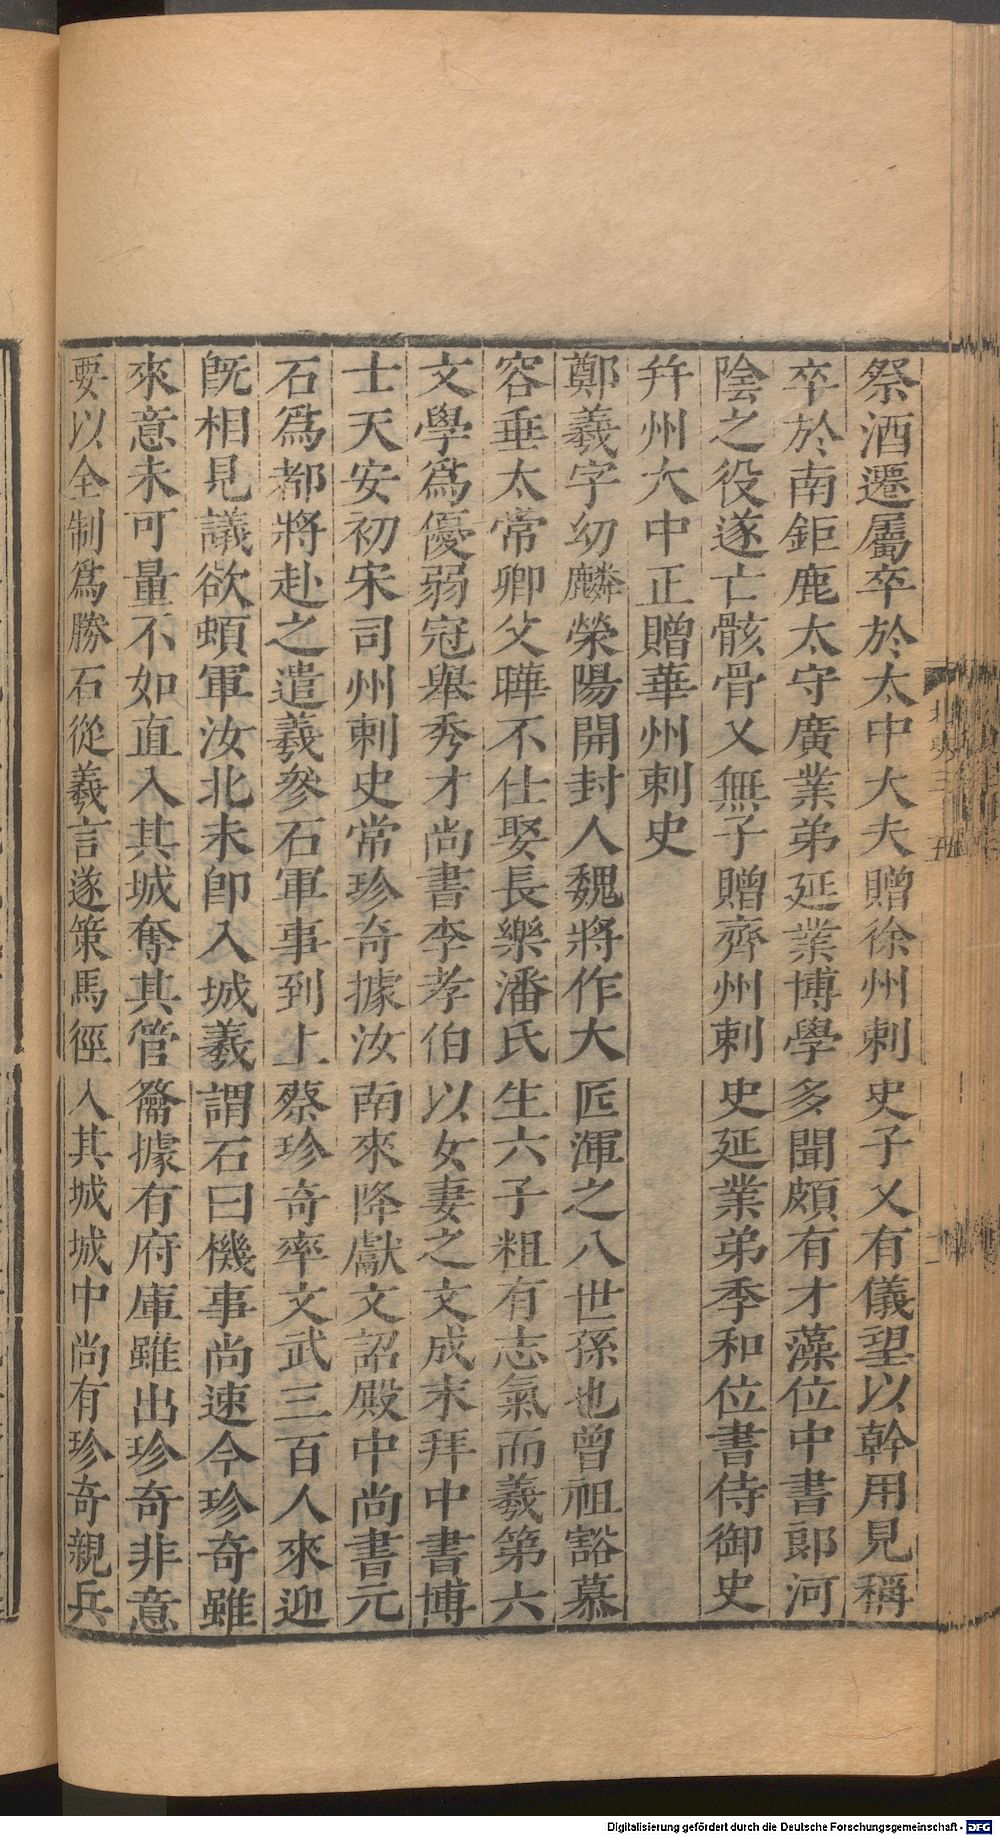 祭酒遷屬卒於太中大夫贈徐州刺史子乂有儀望以幹用見稱
卒於南鉅鹿太守廣業弟延業博學多聞頗有才藻位中書郎河
陰之役遂亡骸骨又無子贈齊州刺史延業弟季和位書侍御史
幷州大中正贈華州刺史
鄭羲字幼麟滎陽開封人魏將作大匠渾之八世孫也曾祖豁慕
容垂太常卿父曄不仕娶長樂潘氏生六子粗有志氣而羲第六
文學爲優弱冠舉秀才尚書李孝伯以女妻之文成末拜中書博
士天安初宋司州刺史常珍奇據汝南來降獻文詔殿中尚書元
石爲都將赴之遣羲參石軍事到上蔡珍奇率文武三百人來迎
旣相見議欲頓軍汝北未卽入城羲謂石曰機事尚速今珍奇雖
來意未可量不如直入其城奪其管籥據有府庫雖出珍奇非意
要以全制爲勝石從羲言遂策馬徑入其城城中尚有珍奇親兵